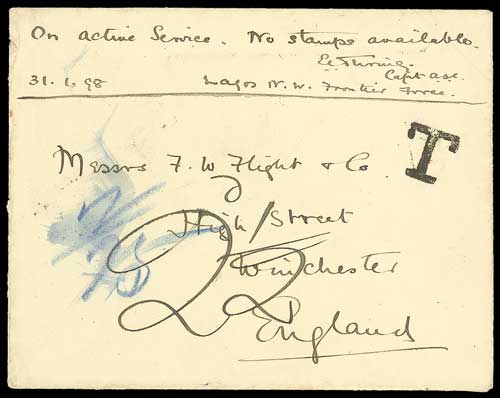 On Active Service. No stamps available.
Capt asc.
31.1.98 Lagos N.W. Frontier Force.
T
Messrs F. W Flight & Co.
High Street
Winchester
England